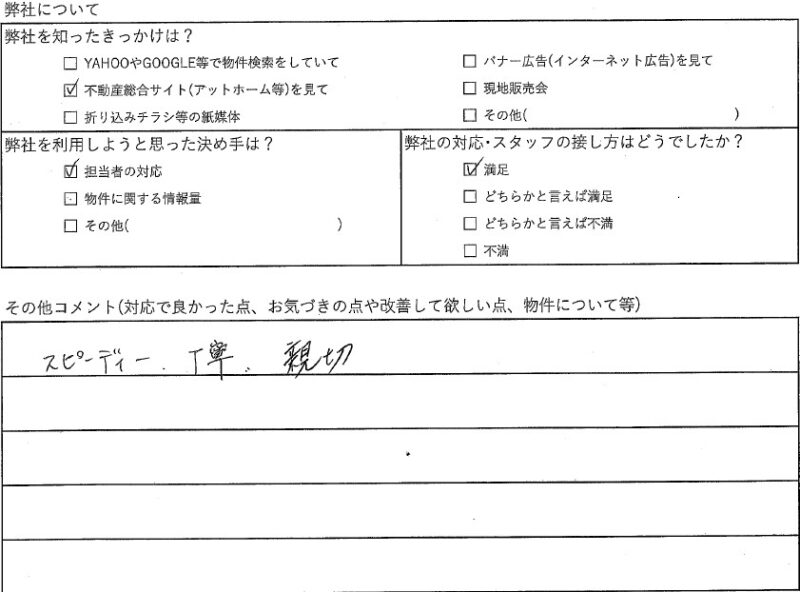 弊社について
弊社を知ったきっかけは？
☐ YAHOOやGOOGLE等で物件検索をしていて
☐ バナー広告(インターネット広告)を見て
☑ 不動産総合サイト(アットホーム等)を見て
☐ 現地販売会
☐ 折り込みチラシ等の紙媒体
☐ その他( )
弊社を利用しようと思った決め手は？
☑ 担当者の対応
☐ 物件に関する情報量
☐ その他( )
弊社の対応・スタッフの接し方はどうでしたか？
☑ 満足
☐ どちらかと言えば満足
☐ どちらかと言えば不満
☐ 不満
その他コメント(対応で良かった点、お気づきの点や改善して欲しい点、物件について等)
スピーディー、丁寧、親切